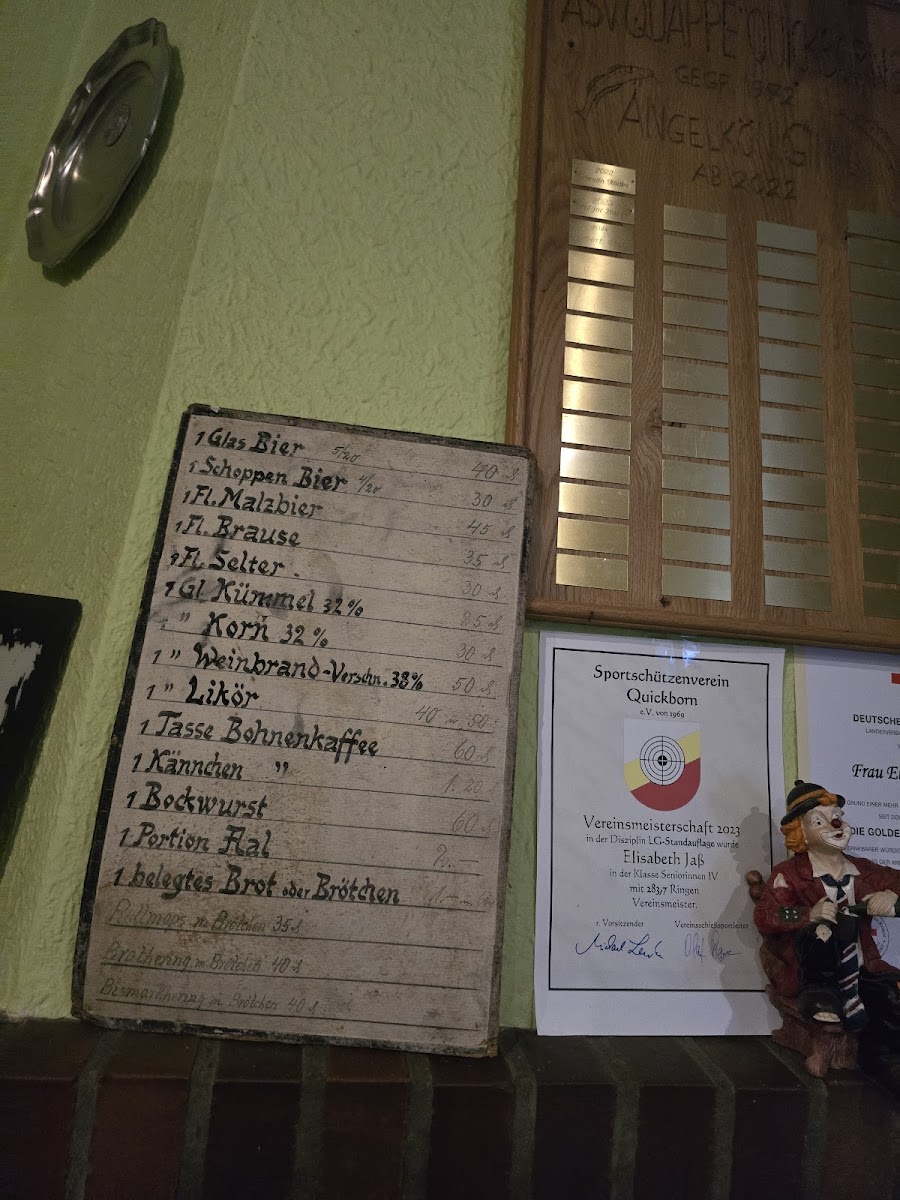 1 Glas Bier 5/20 40 ₰
1 Schoppen Bier 4/20 30 ₰
1 Fl. Malzbier 45 ₰
1 Fl. Brause 35 ₰
1 Fl. Selter 30 ₰
1 Gl. Kümmel 32% 25 ₰
1 " Korn 32% 30 ₰
1 " Weinbrand-Verschn. 38% 50 ₰
1 " Likör 40 50
1 Tasse Bohnenkaffee 60 ₰
1 Kännchen " 1.20
1 Bockwurst 60 ₰
1 Portion Aal 2.
1 belegtes Brot oder Brötchen
Rollmops m Brötchen 35 ₰
Brathering m Brötchen 40 ₰
Bismarkhering m Brötchen 40 ₰
ASV QUAPPE QUICKBORN
GEGR 1972
ANGELKÖNIGIN
AB 2022
2022
Sportschützenverein
Quickborn
e.V. von 1969
Vereinsmeisterschaft 2023
in der Disziplin LG-Standauflage wurde
Elisabeth Jaß
in der Klasse Seniorinnen IV
mit 283,7 Ringen
Vereinsmeister.
1. Vorsitzender Vereinsschießsportleiter
DEUTSCHE
Frau El
DIE GOLDE